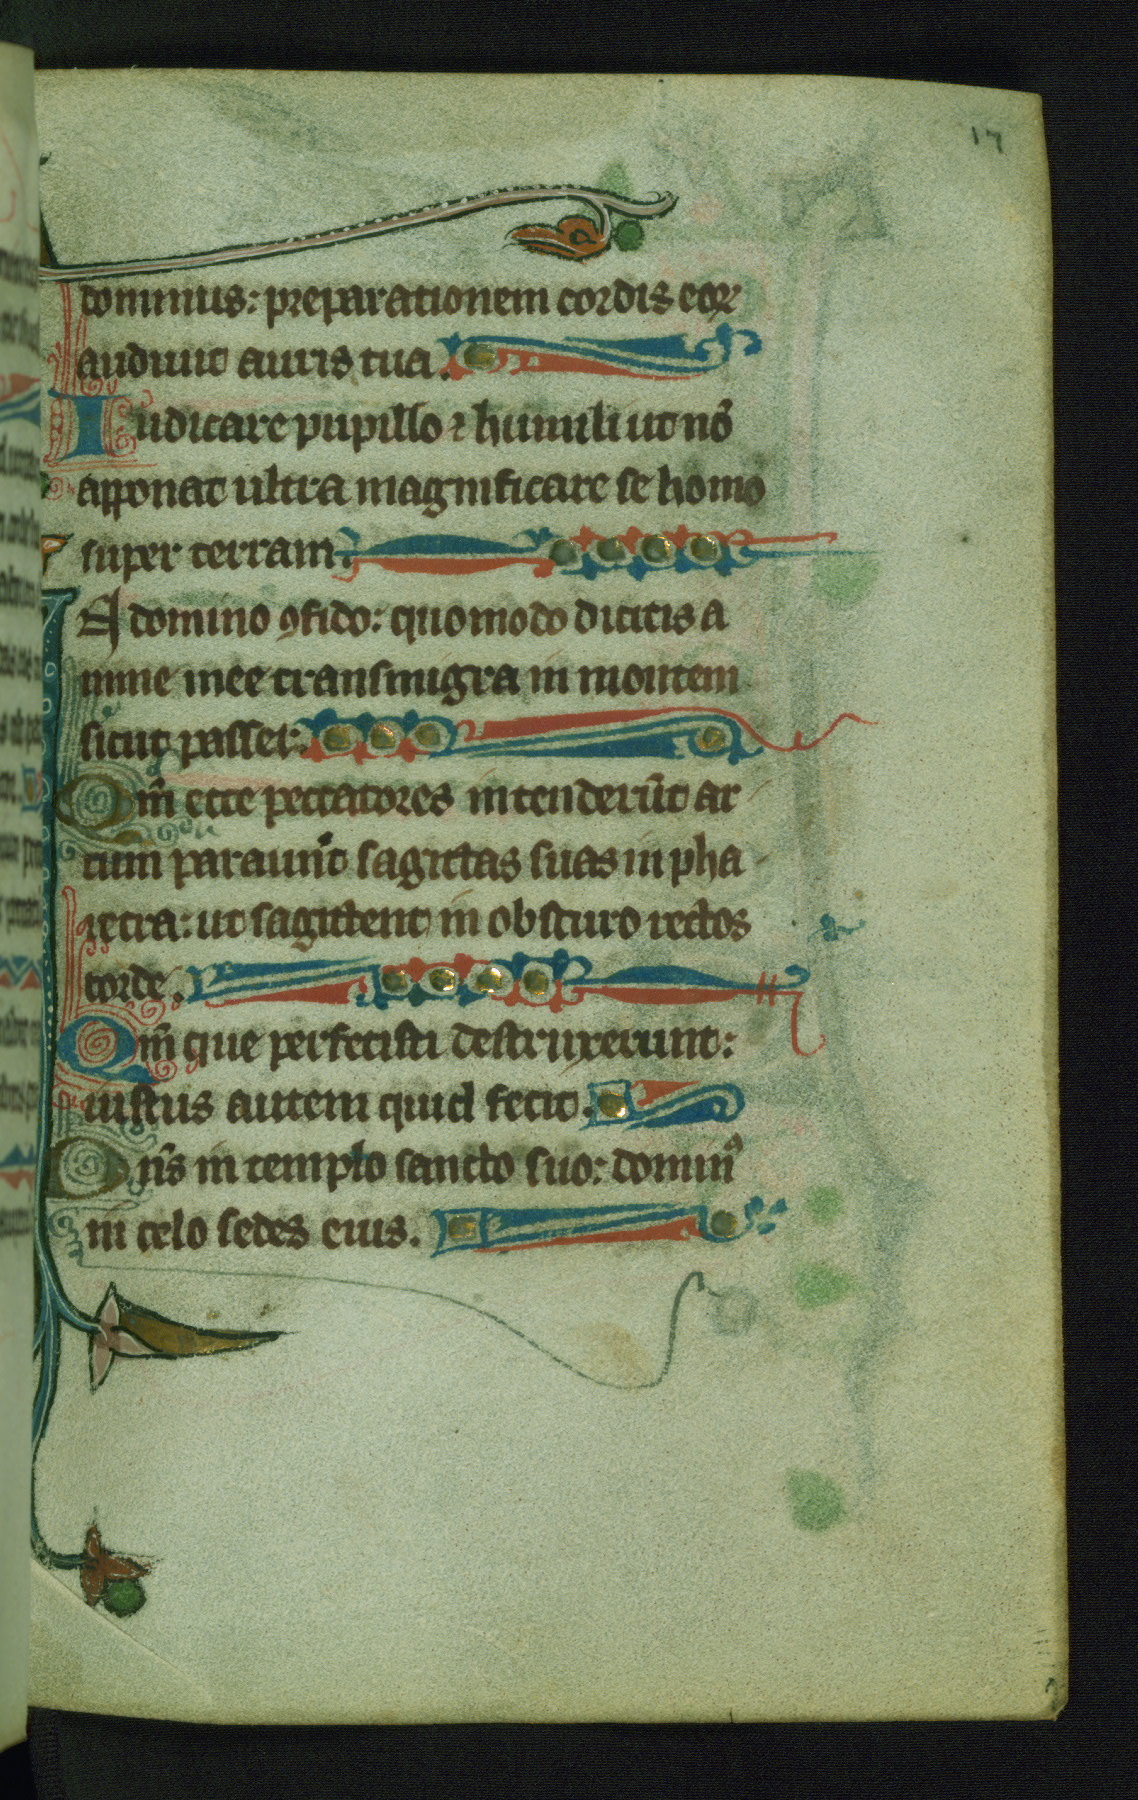 17
dominus: preparationem cordis eoꝝ
audiuit auris tua.
Iudicare pupillo ⁊ humili ut nō
apponat ultra magnificare se homo
super terram.
A domino ꝯfido: quomodo dicitis a
nime mee transmigra in montem
sicut passer.
Qm̄ ecce peccatores intenderūt ar
cum parauer̄t sagittas suas in pha
retra: ut sagittent in obscuro rectos
corde.
Qm̄ que perfecisti destruxerunt:
iustus autem quid fecit.
Dn̄s in templo sancto suo: dominꝰ
in celo sedes eius.